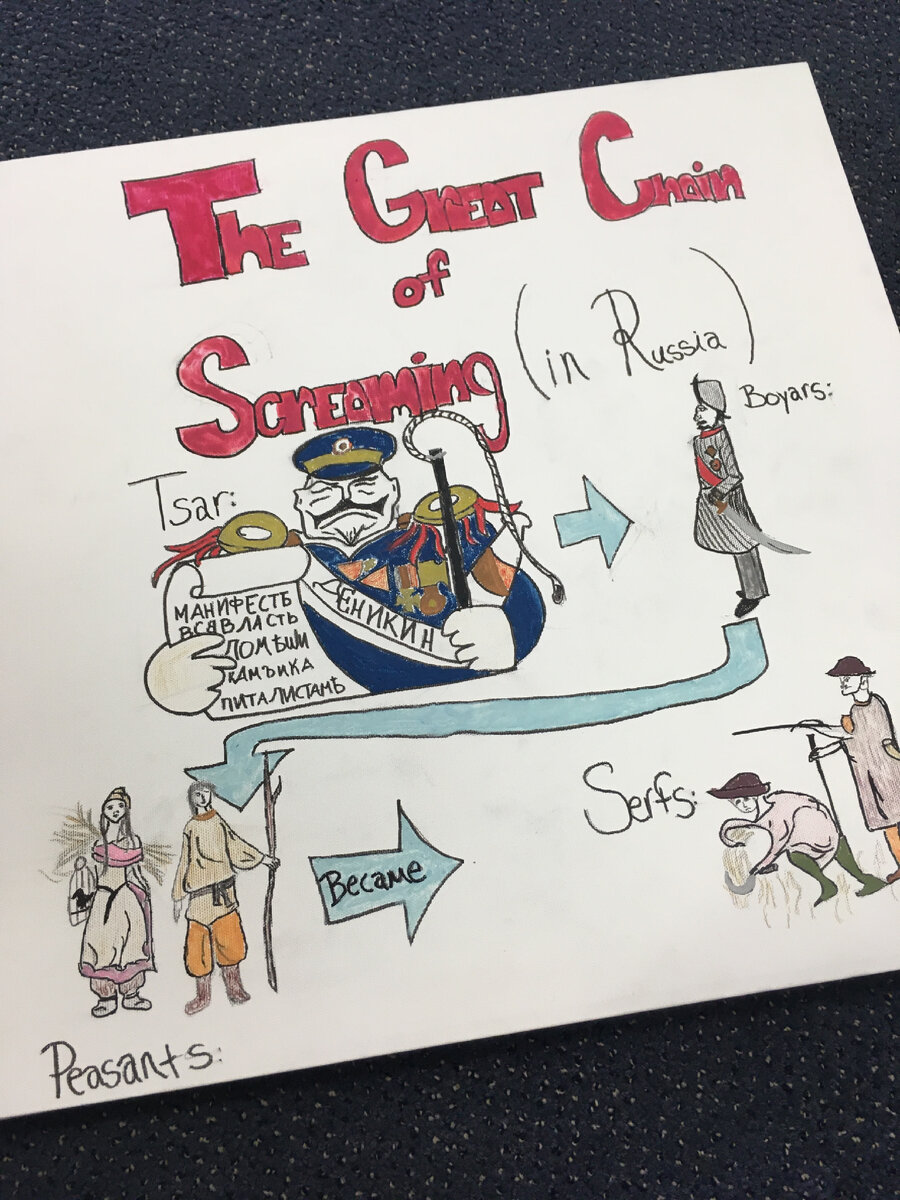 The Great Chain
of
Screaming (in Russia)
Tsar:
Boyars:
МАНИФЕСТЬ
ВСЯ ВЛАСТЬ
ПОМѢЩИ
КАМЪ И КА
ПИТАЛИСТАМЪ
ЕНИКИН
Serfs:
Became
Peasants: